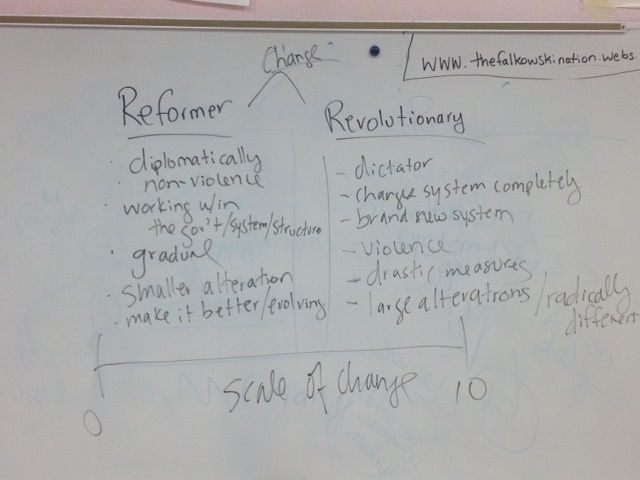 Change
www.thefalkowskination.webs.
Reformer
· diplomatically
· non-violence
· working w/in
the gov't/system/structure
· gradual
· smaller alteration
· make it better/evolving
Revolutionary
- dictator
- change system completely
- brand new system
- violence
- drastic measures
- large alterations/radically
different
0
scale of change
10